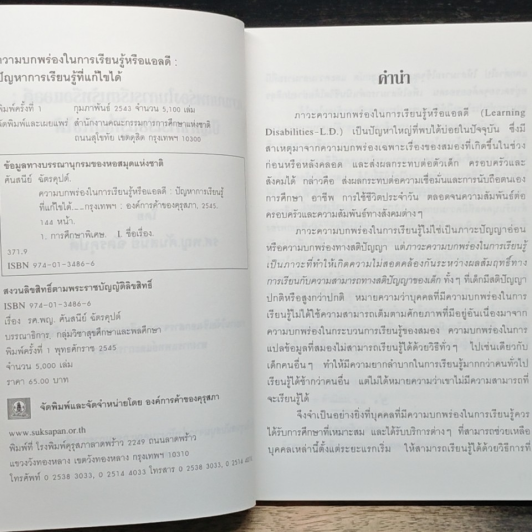 ความบกพร่องในการเรียนรู้หรือแอลดี :
ปัญหาการเรียนรู้ที่แก้ไขได้
พิมพ์ครั้งที่ 1 กุมภาพันธ์ 2543 จำนวน 5,100 เล่ม
จัดพิมพ์และเผยแพร่ สำนักงานคณะกรรมการการศึกษาแห่งชาติ
ถนนสุโขทัย เขตดุสิต กรุงเทพฯ 10300
ข้อมูลทางบรรณานุกรมของหอสมุดแห่งชาติ
คันสนีย์ ฉัตรคุปต์.
ความบกพร่องในการเรียนรู้หรือแอลดี : ปัญหาการเรียนรู้
ที่แก้ไขได้.--กรุงเทพฯ : องค์การค้าของคุรุสภา, 2545.
144 หน้า.
1. การศึกษาพิเศษ. I. ชื่อเรื่อง.
371.9
ISBN 974-01-3486-6
สงวนลิขสิทธิ์ตามพระราชบัญญัติลิขสิทธิ์
ISBN 974-01-3486-6
เรื่อง รศ.พญ. คันสนีย์ ฉัตรคุปต์
บรรณาธิการ กลุ่มวิชาสุขศึกษาและพลศึกษา
พิมพ์ครั้งที่ 1 พุทธศักราช 2545
จำนวน 5,000 เล่ม
ราคา 65.00 บาท
จัดพิมพ์และจัดจำหน่ายโดย องค์การค้าของคุรุสภา
www.suksapan.or.th
พิมพ์ที่ โรงพิมพ์คุรุสภาลาดพร้าว 2249 ถนนลาดพร้าว
แขวงวังทองหลาง เขตวังทองหลาง กรุงเทพฯ 10310
โทรศัพท์ 0 2538 3033, 0 2514 4033 โทรสาร 0 2538 3033, 0 2514
คำนำ
ภาวะความบกพร่องในการเรียนรู้หรือแอลดี (Learning
Disabilities-L.D.) เป็นปัญหาใหญ่ที่พบได้บ่อยในปัจจุบัน ซึ่งมี
สาเหตุมาจากความบกพร่องเฉพาะเรื่องของสมองที่เกิดขึ้นในช่วง
ก่อนหรือหลังคลอด และส่งผลกระทบต่อตัวเด็ก ครอบครัวและ
สังคมได้ กล่าวคือ ส่งผลกระทบต่อความเชื่อมั่นและการนับถือตนเอง
การศึกษา อาชีพ การใช้ชีวิตประจำวัน ตลอดจนความสัมพันธ์ต่อ
ครอบครัวและความสัมพันธ์ทางสังคมต่างๆ
ภาวะความบกพร่องในการเรียนรู้ไม่ใช่เป็นภาวะปัญญาอ่อน
หรือความบกพร่องทางสติปัญญา แต่ภาวะความบกพร่องในการเรียนรู้
เป็นภาวะที่ทำให้เกิดความไม่สอดคล้องกันระหว่างผลสัมฤทธิ์ทาง
การเรียนกับความสามารถทางสติปัญญาของเด็ก ทั้งๆ ที่เด็กมีสติปัญญา
ปกติหรือสูงกว่าปกติ หมายความว่าบุคคลที่มีความบกพร่องในการ
เรียนรู้ไม่ได้ใช้ความสามารถเดิมตามศักยภาพที่มีอยู่อันเนื่องมาจาก
ความบกพร่องในกระบวนการเรียนรู้ของสมอง ความบกพร่องในการ
แปลข้อมูลที่สมองไม่สามารถเรียนรู้ได้ด้วยวิธีทั่วๆ ไปเช่นเดียวกับ
เด็กคนอื่นๆ ทำให้มีความยากลำบากในการเรียนรู้มากกว่าคนทั่วไป
เรียนรู้ได้ช้ากว่าคนอื่น แต่ไม่ได้หมายความว่าเขาไม่มีความสามารถที่
จะเรียนรู้ได้
จึงจำเป็นอย่างยิ่งที่บุคคลที่มีความบกพร่องในการเรียนรู้ควร
ได้รับการศึกษาที่เหมาะสม และได้รับบริการต่างๆ ที่สามารถช่วยเหลือ
บุคคลเหล่านี้ตั้งแต่ระยะแรกเริ่ม ให้สามารถเรียนรู้ได้ด้วยวิธีการที่